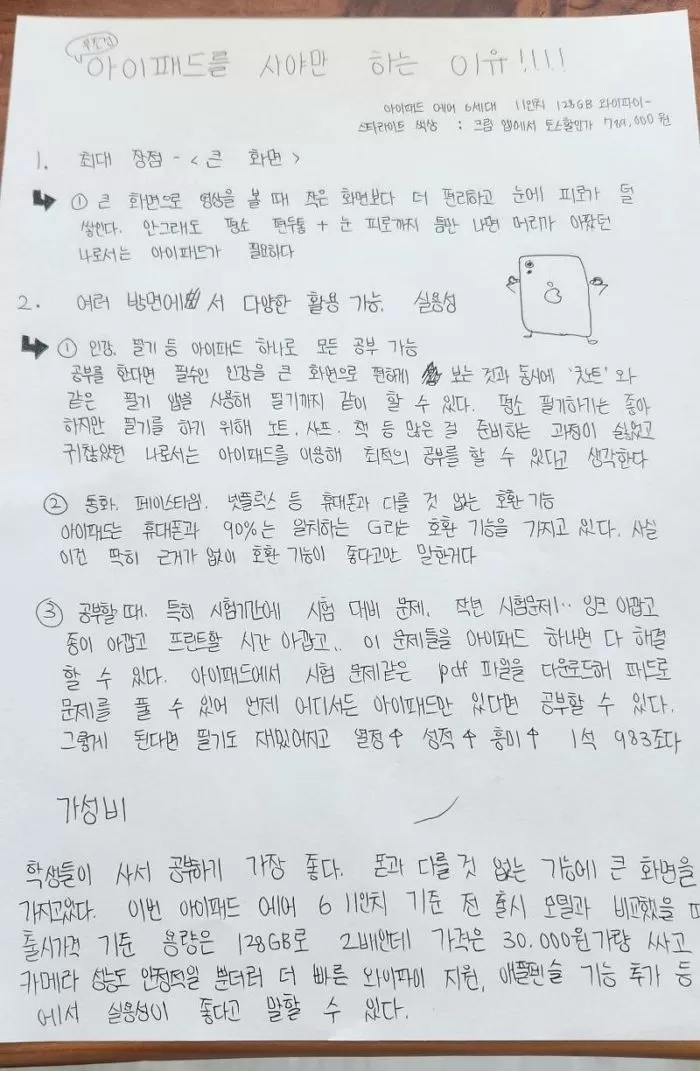 무조건
아이패드를 사야만 하는 이유!!!!
아이패드 에어 6세대 11인치 128GB 와이파이-
스타라이트 색상 : 크림 앱에서 토스할인가 789,000원
1. 최대 장점 - <큰 화면>
① 큰 화면으로 영상을 볼 때 작은 화면보다 더 편리하고 눈에 피로가 덜
쌓인다. 안그래도 평소 편두통 + 눈 피로까지 틈만 나면 머리가 아팠던
나로서는 아이패드가 필요하다
2. 여러 방면에서 다양한 활용 가능. 실용성
① 인강, 필기 등 아이패드 하나로 모든 공부 가능
공부를 한다면 필수인 인강을 큰 화면으로 편하게 보는 것과 동시에 '노트'와
같은 필기 앱을 사용해 필기까지 같이 할 수 있다. 평소 필기하기는 좋아
하지만 필기를 하기 위해 노트. 샤프. 책 등 많은 걸 준비하는 과정이 싫었고
귀찮았던 나로서는 아이패드를 이용해 최적의 공부를 할 수 있다고 생각한다
② 통화, 페이스타임, 넷플릭스 등 휴대폰과 다를 것 없는 호환 기능
아이패드는 휴대폰과 90%는 일치하는 호환 기능을 가지고 있다. 사실
이건 딱히 근거가 없이 호환 기능이 좋다고만 말한거다
③ 공부할 때, 특히 시험기간에 시험 대비 문제, 작년 시험문제.. 잉크 아깝고
종이 아깝고 프린트할 시간 아깝고.. 이 문제들을 아이패드 하나면 다 해결
할 수 있다. 아이패드에서 시험 문제같은 pdf 파일을 다운로드해 패드로
문제를 풀 수 있어 언제 어디서든 아이패드만 있다면 공부할 수 있다.
그렇게 된다면 필기도 재밌어지고 열정↑ 성적↑ 흥미↑ 1석 983조다
가성비
학생들이 사서 공부하기 가장 좋다. 폰과 다를 것 없는 기능에 큰 화면을
가지고있다. 이번 아이패드 에어 6 11인치 기준 전 출시 모델과 비교했을 때
출시가격 기준 용량은 128GB로 2배인데 가격은 30.000원가량 싸고
카메라 성능도 안정적일 뿐더러 더 빠른 와이파이 지원, 애플펜슬 기능 추가 등
에서 실용성이 좋다고 말할 수 있다.